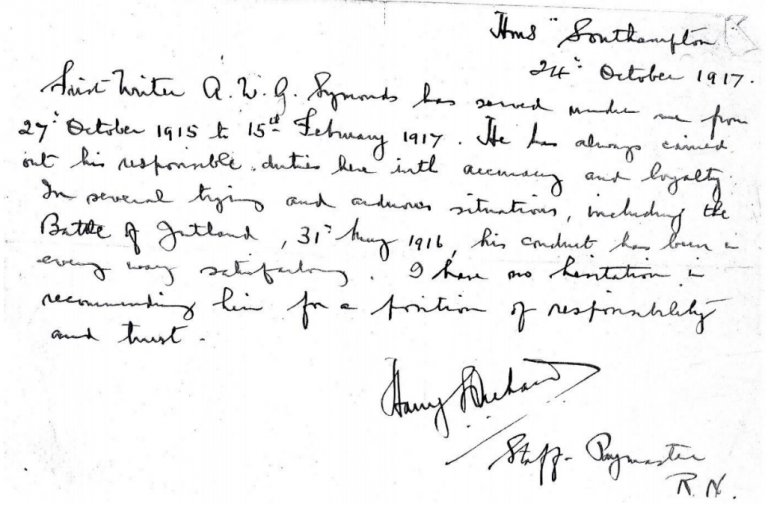 Hms "Southampton
24th October 1917.
First Writer A. W. G. Symonds has served under me from
27th October 1915 to 15th February 1917. He has always carried
out his responsible duties here with accuracy and loyalty.
In several trying and arduous situations, including the
Battle of Jutland, 31st May 1916, his conduct has been in
every way satisfactory. I have no hesitation in
recommending him for a position of responsibility
and trust.
Harry
Staff-Paymaster
R.N.